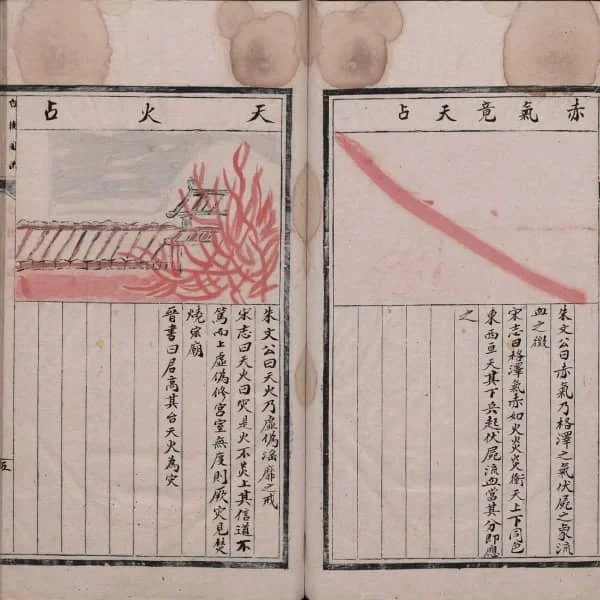 赤氣竟天占
朱文公曰赤氣乃格澤之氣伏屍之象流
血之徵
宋志曰格澤氣赤如火炎炎衝天上下同色
東西亘天其下兵起伏屍流血當其分即應
之
天火占
朱文公曰天火乃虛偽滛靡之戒
宋志曰天火曰灾是火不炎上其信道不
篤而上虛偽修宮室無度則厥灾見焚
燒宗廟
晉書曰君高其台天火為灾